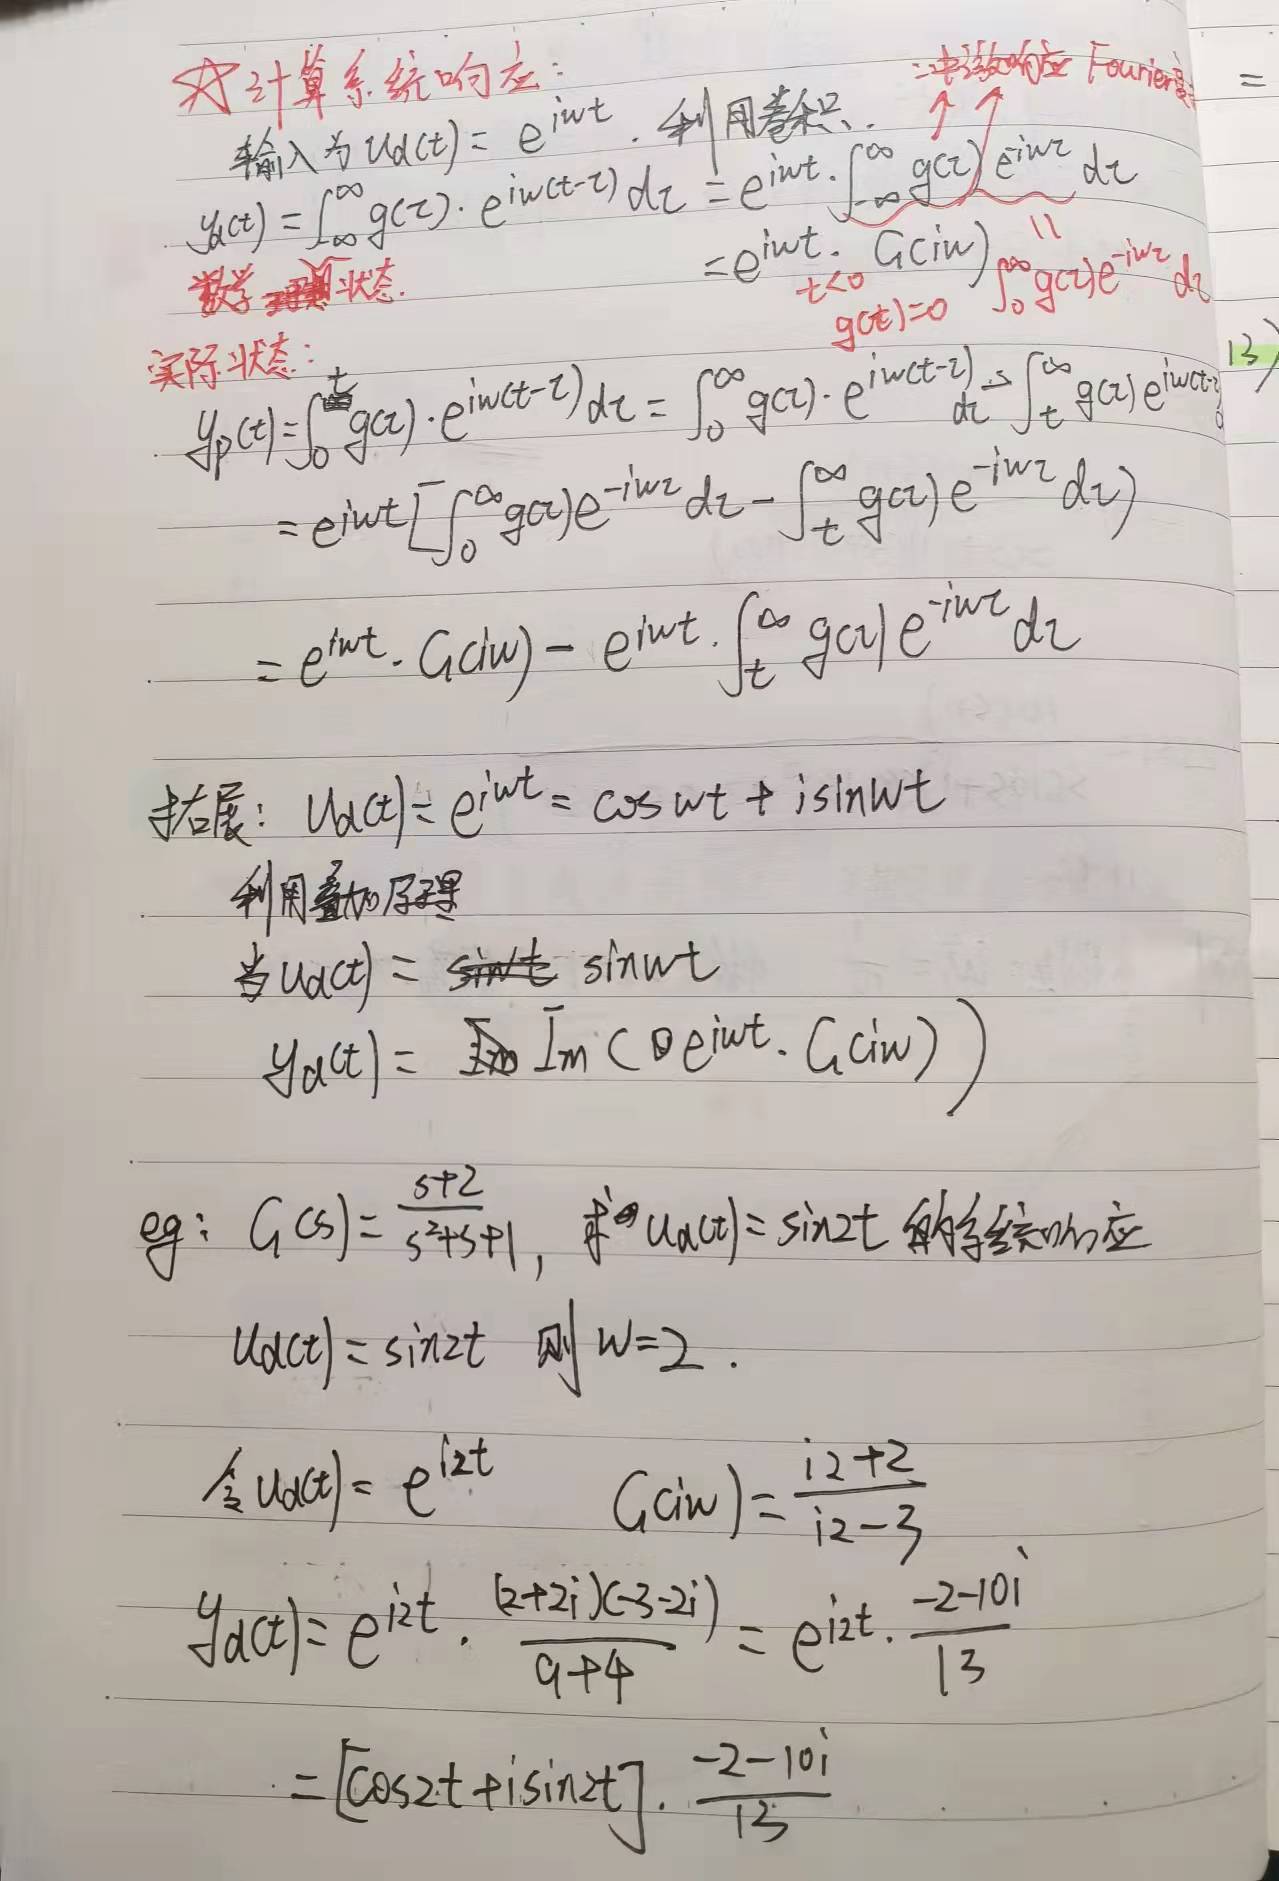 ☆计算系统响应:
∴冲激响应 Fourier变
=
输入为 u_d(t) = e^{iwt}. 利用卷积.
y_d(t) = ∫_{-∞}^{∞} g(τ)·e^{iw(t-τ)} dτ = e^{iwt}·∫_{-∞}^{∞} g(τ) e^{-iwτ} dτ
= e^{iwt}· G(iw)
数学 状态.
t<0
g(t)=0
|| ∫_0^∞ g(τ)e^{-iwτ} dτ
实际状态:
13)
y_p(t) = ∫_0^t g(τ)·e^{iw(t-τ)} dτ = ∫_0^∞ g(τ)·e^{iw(t-τ)} dτ - ∫_t^∞ g(τ) e^{iw(t-τ)}
= e^{iwt} [∫_0^∞ g(τ)e^{-iwτ} dτ - ∫_t^∞ g(τ) e^{-iwτ} dτ)
= e^{iwt}· G(iw) - e^{iwt}·∫_t^∞ g(τ) e^{-iwτ} dτ
拓展: u_d(t) = e^{iwt} = cos wt + i sin wt
利用叠加原理
当 u_d(t) = sin wt
y_d(t) = Im ( e^{iwt}· G(iw) )
eg: G(s) = (s+2)/(s²+s+1), 求 u_d(t) = sin2t 的系统响应
u_d(t) = sin2t 则 w=2.
令 u_d(t) = e^{i2t} G(iw) = (i2+2)/(i2-3)
y_d(t) = e^{i2t}· (2+2i)(-3-2i)/(9+4) = e^{i2t}· (-2-10i)/13
= [cos2t + i sin2t]· (-2-10i)/13